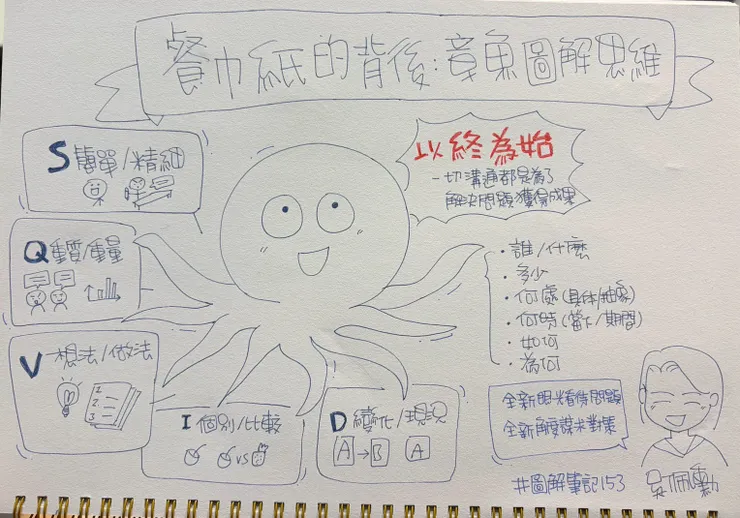 餐巾紙的背後:章魚圖解思維
S 簡單/精細
Q 重質/重量
V 想法/做法
1
2
3
I 個別/比較
VS
D 變化/現況
A→B A
以終為始
一切溝通都是為了
解決問題獲得成果
・誰/什麼
・多少
・何處(具体/抽象)
・何時(當下/期間)
・如何
・為何
全新眼光看待問題
全新角度謀求對策
#圖解筆記153